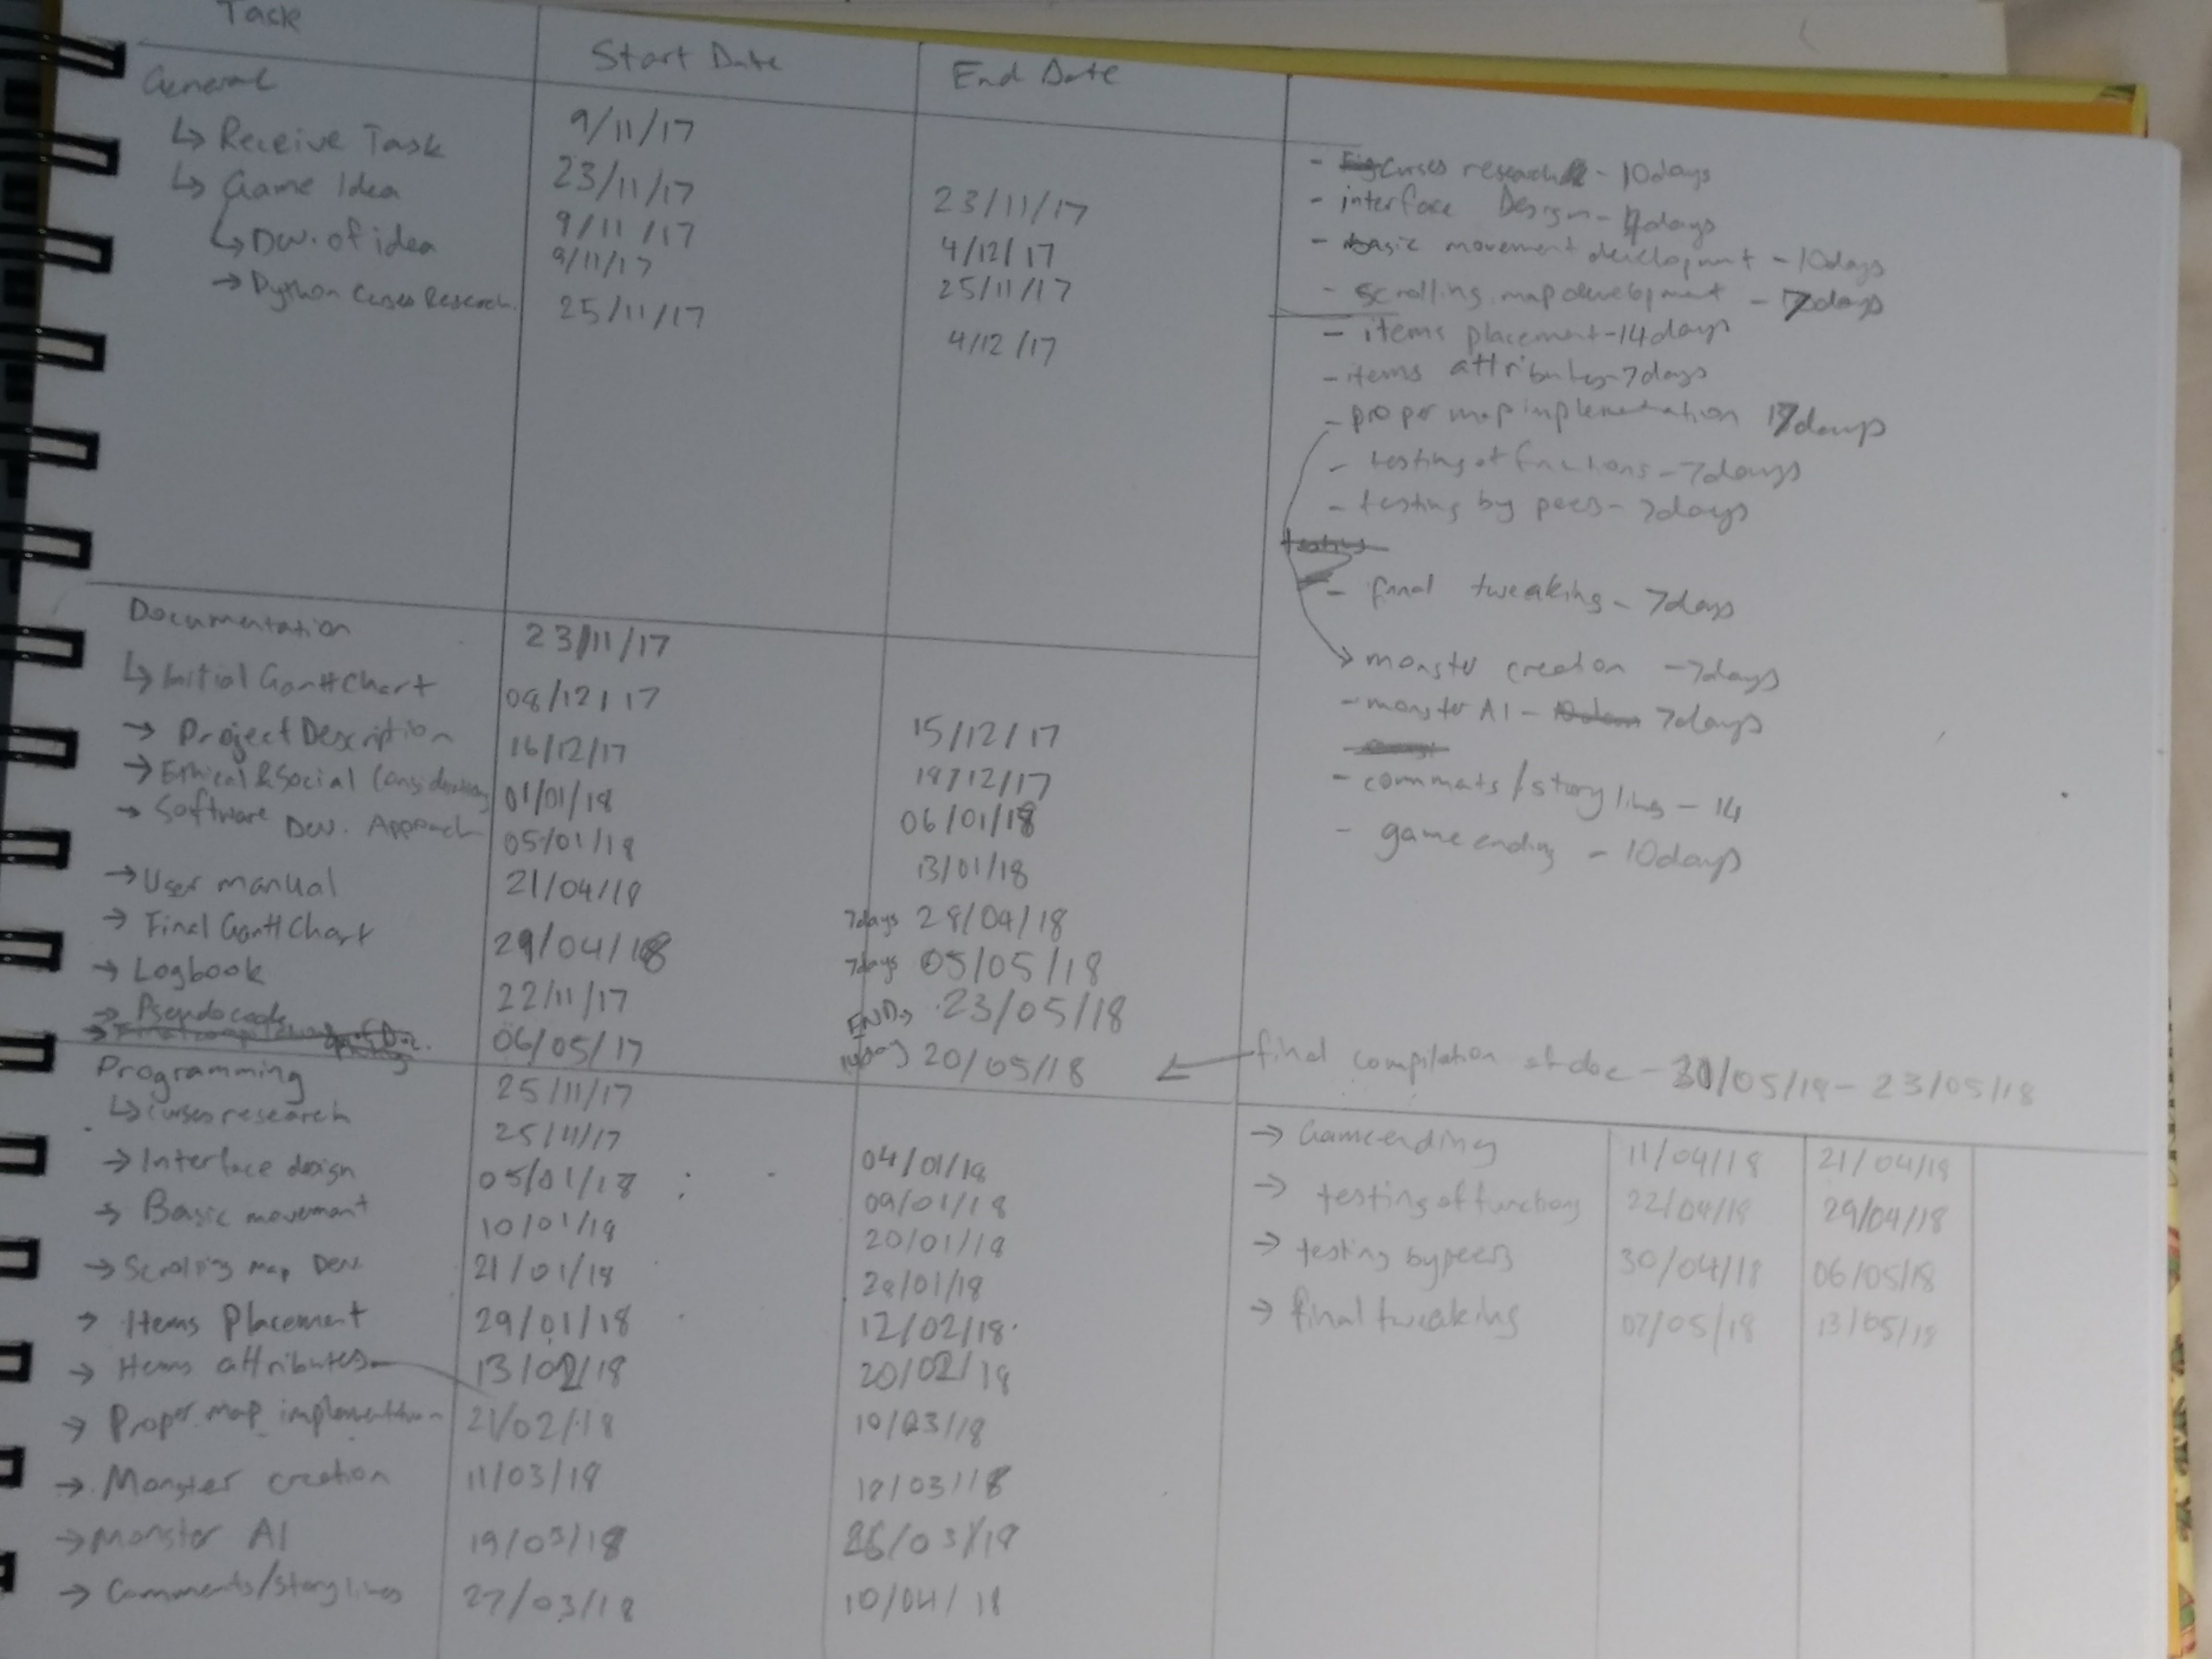 Task Start Date End Date
General 9/11/17
↳ Receive Task 23/11/17 23/11/17
↳ Game Idea 9/11/17 4/12/17
↳ Dev. of idea 9/11/17 25/11/17
→ Python Curses Research 25/11/17 4/12/17
Documentation 23/11/17
↳ Initial Gantt Chart 08/12/17 15/12/17
→ Project Description 16/12/17 18/12/17
→ Ethical & Social Considerations 01/01/18 06/01/18
→ Software Dev. Approach 05/01/18 13/01/18
→ User manual 21/04/18 7days 28/04/18
→ Final Gantt Chart 29/04/18 7days 05/05/18
→ Logbook 22/11/17 END→ 23/05/18
→ Pseudocode 06/05/17 20/05/18
Programming 25/11/17
↳ curses research 25/11/17 04/01/18
→ Interface design 05/01/18 09/01/18
→ Basic movement 10/01/18 20/01/18
→ Scrolling map Dev. 21/01/18 28/01/18
→ Items Placement 29/01/18 12/02/18
→ Items attributes 13/02/18 20/02/18
→ Proper map implementation 21/02/18 10/03/18
→ Monster creation 11/03/18 18/03/18
→ Monster AI 19/03/18 26/03/18
→ Comments/story lines 27/03/18 10/04/18
- curses research - 10days
- interface Design - days
- basic movement development - 10days
- scrolling map development - 7days
- items placement - 14days
- items attributes - 7days
- proper map implementation 17days
- testing of functions - 7days
- testing by peers - 7days
- final tweaking - 7days
→ monster creation - 7days
- monster AI - 7days
- comments / story lines - 14
- game ending - 10days
← final compilation of doc - /05/18 - 23/05/18
→ Game ending 11/04/18 21/04/18
→ testing of functions 22/04/18 29/04/18
→ testing by peers 30/04/18 06/05/18
→ final tweaking 07/05/18 13/05/18